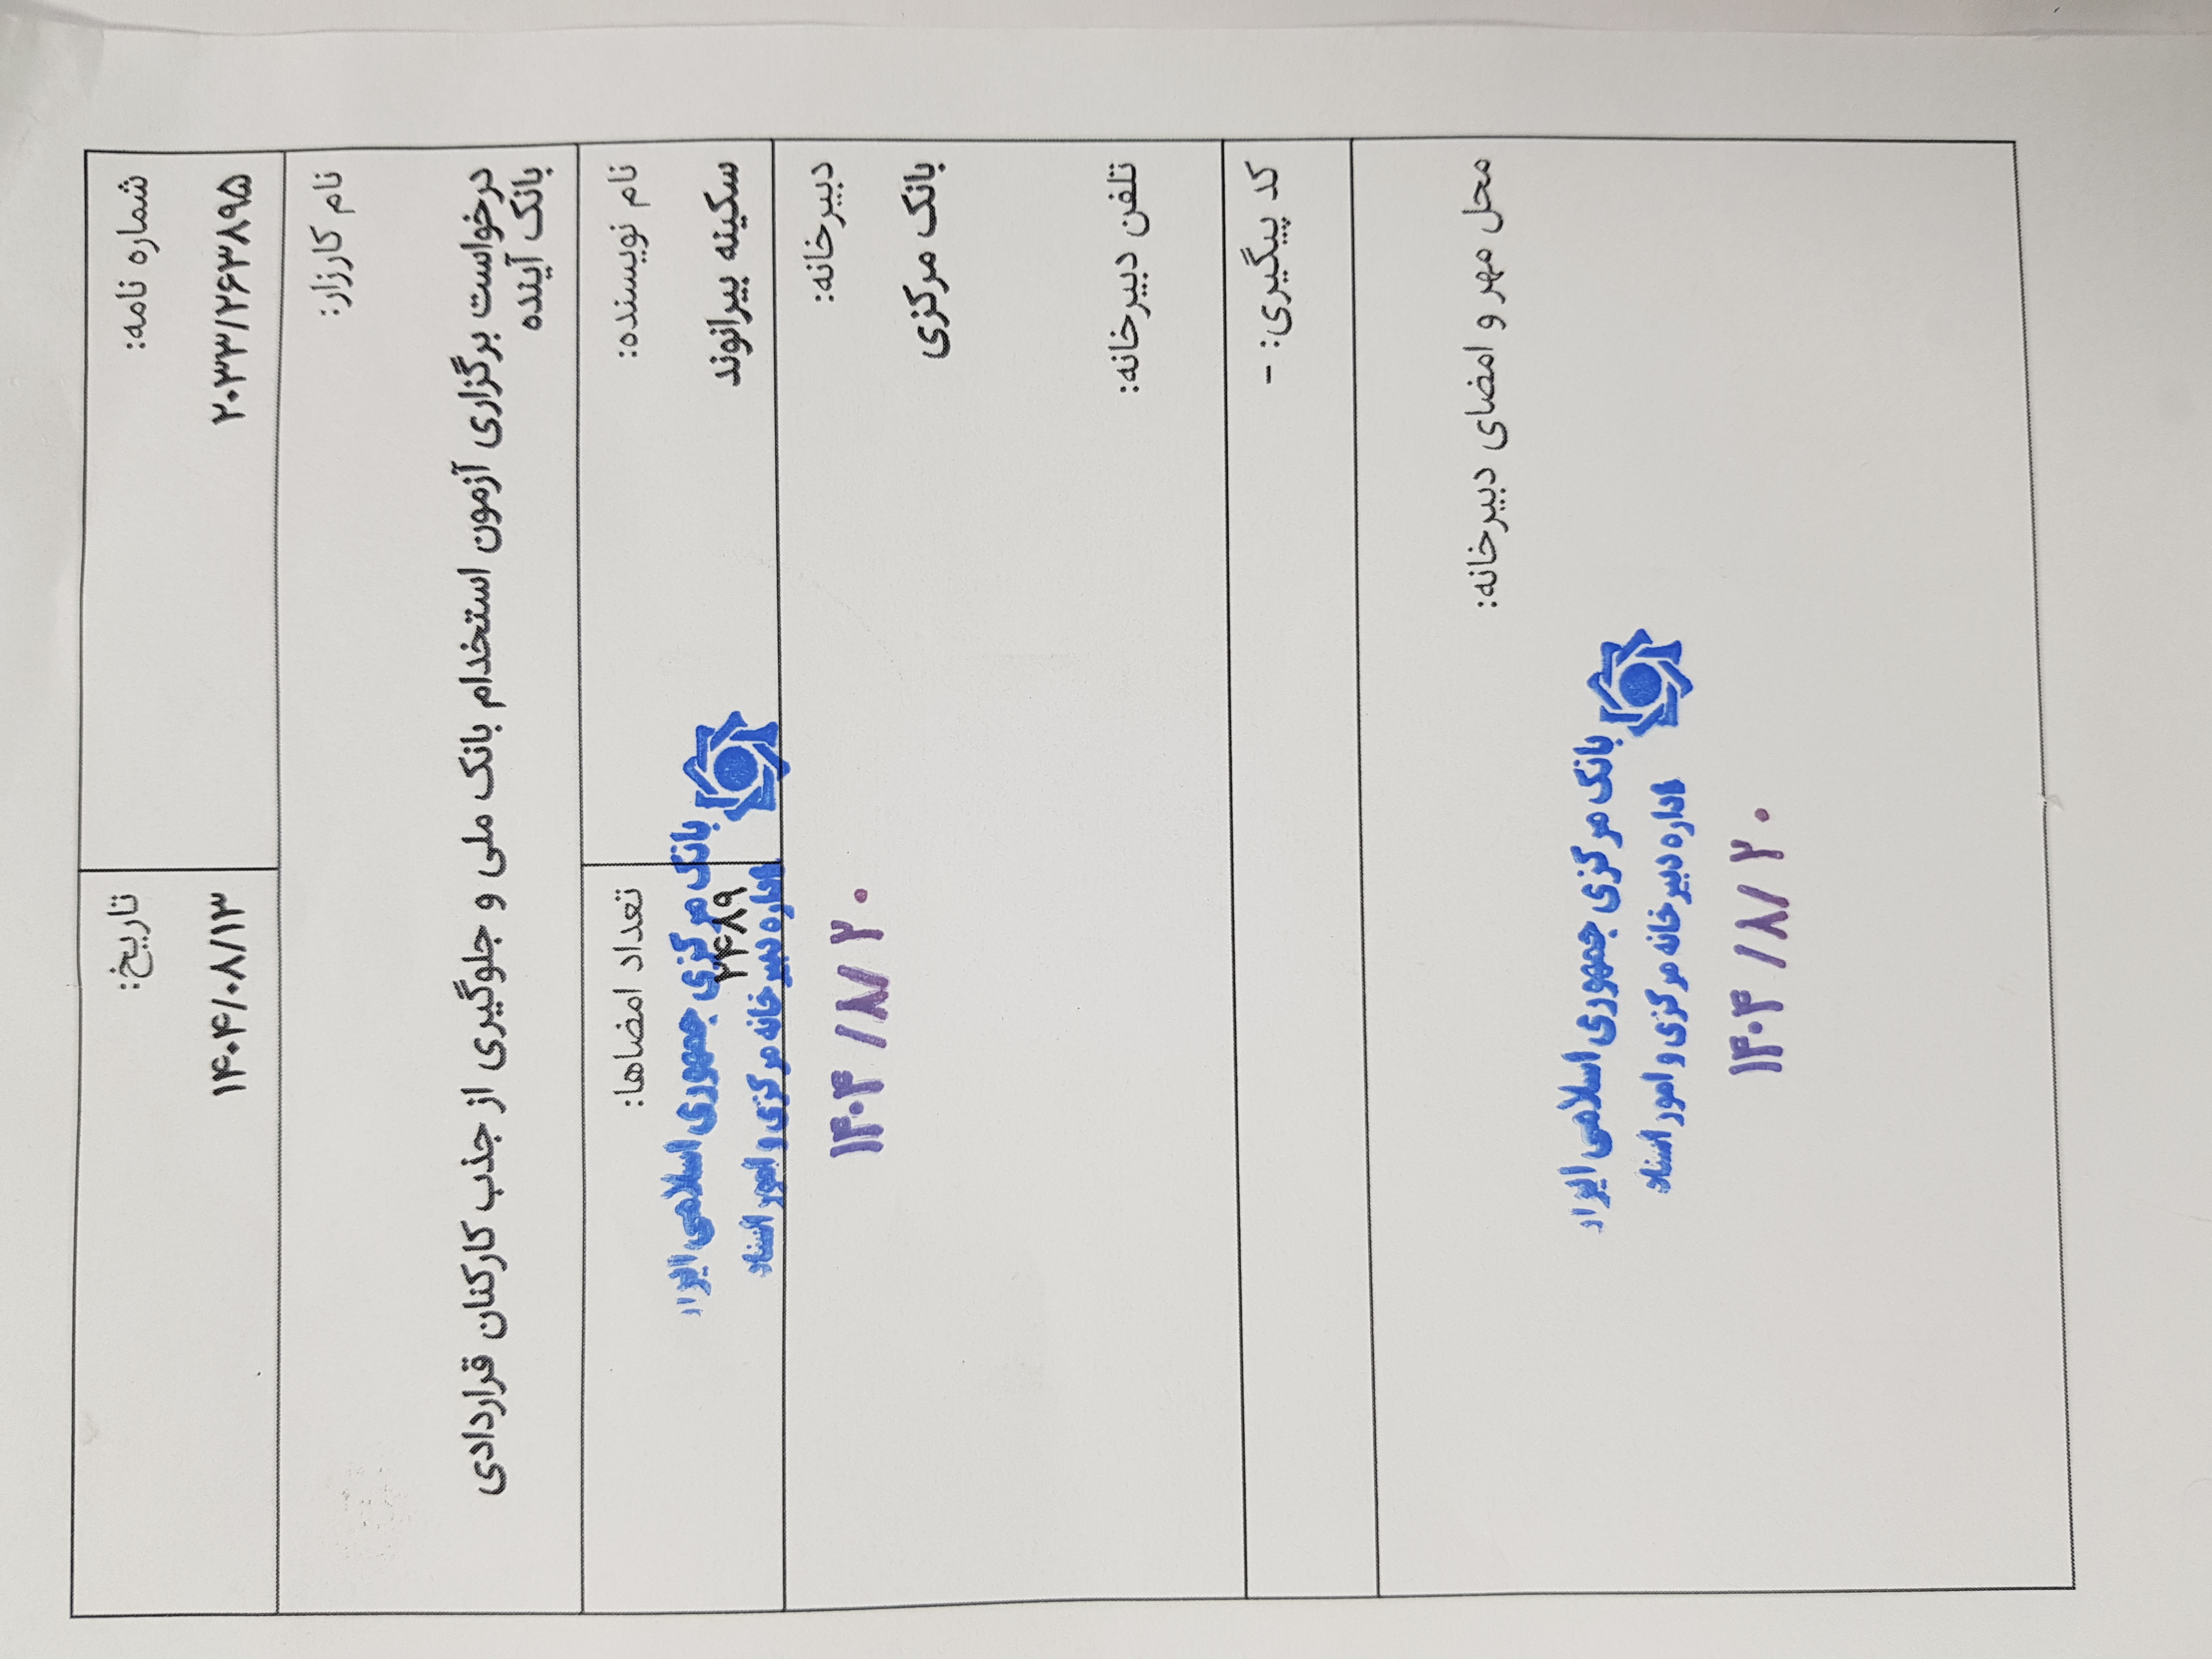 شماره نامه:
۲۰۳۳/۲۶۳۸۹۵
تاریخ:
۱۴۰۴/۰۸/۱۳
نام کارزار:
درخواست برگزاری آزمون استخدام بانک ملی و جلوگیری از جذب کارکنان قراردادی
بانک آینده
نام نویسنده:
سکینه بیرانوند
تعداد امضاها:
۲۴۸۹
بانک مرکزی جمهوری اسلامی ایران
اداره دبیرخانه مرکزی و امور اسناد
۱۴۰۴ /۸/ ۲۰
دبیرخانه:
بانک مرکزی
تلفن دبیرخانه:
کد پیگیری: -
محل مهر و امضای دبیرخانه:
بانک مرکزی جمهوری اسلامی ایران
اداره دبیرخانه مرکزی و امور اسناد
۱۴۰۴ /۸/ ۲۰